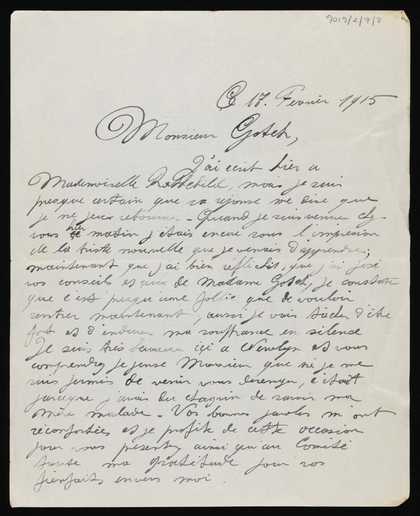 9019/2/9/2
Ce 17. Fevrier 1915
Monsieur Gotch,
J'ai ecrit hier a
Mademoiselle Rothchild, mais je suis
presque certain que sa reponse me dise que
je ne peux retourner - Quand je suis venue chez
vous ce matin j'étais encore sous l'impression
de la triste nouvelle que je venais d'apprendre;
maintenant que j'ai bien réfléchit, que j'ai pesé
vos conseils et ceux de Madame Gotch, je constate
que c'est presque une folie que de vouloir
rentrer maintenant, aussi je vais tâcher d'être
fort et d'endurer ma souffrance en silence
Je suis très heureux ici a Newlyn et vous
comprendrez je pense Monsieur que si je me
suis permis de venir vous deranger, c'était
parceque j'avais du chagrin de savoir ma
mère malade - Vos bonnes paroles m'ont
réconfortée et je profite de cette occasion
pour vous présenter ainsi qu'au Comité
toute ma gratitude pour vos
bienfaits envers moi.